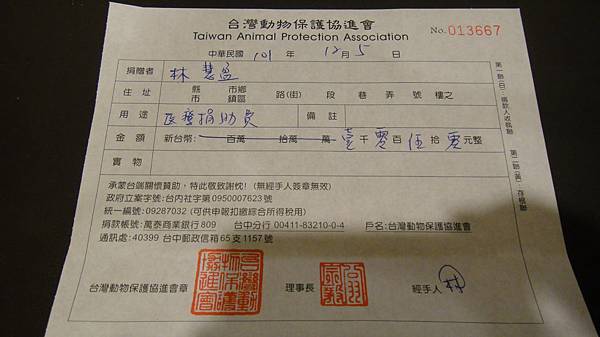 台灣動物保護協進會
Taiwan Animal Protection Association
No. 013667
中華民國 101 年 12 月 5 日
捐贈者 林慧盈
住址 縣市 市鄉鎮區 路(街) 段 巷 弄 號 樓之
用途 醫療捐助費 備註
金額 新台幣: 百萬 拾萬 萬 壹千零百伍拾零元整
實物
承蒙台端關懷贊助,特此敬致謝忱! (無經手人簽章無效)
政府立案字號:台內社字第0950007623號
統一編號:09287032 (可供申報扣繳綜合所得稅用)
捐款帳號:萬泰商業銀行809 台中分行 00411-83210-0-4 戶名:台灣動物保護協進會
通訊處:40399 台中郵政信箱65支1157號
台灣動物保護協進會章 理事長 經手人 林
台灣動物保護協進會
第一聯(白):捐款人收執聯